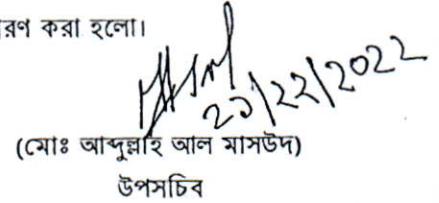 রণ করা হলো।
২১/১২/২০২২
(মোঃ আব্দুল্লাহ আল মাসউদ)
উপসচিব